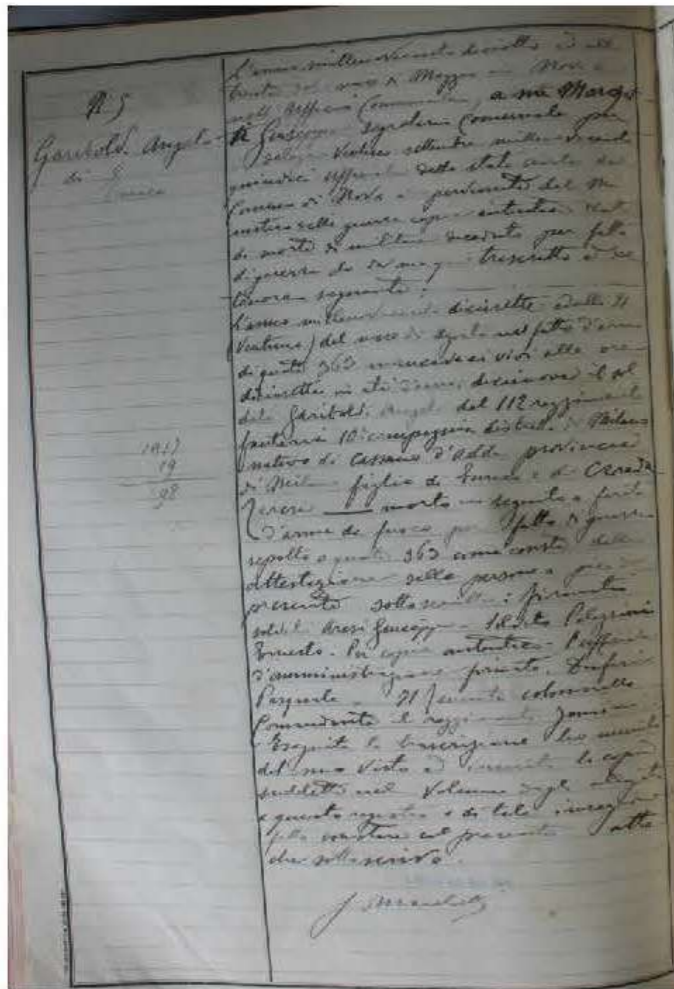 N. 5
Gariboldi Angelo
di Enrico
1917
19
98
L'anno millenovecento diciotto ed alli
trenta del mese di Maggio in Nova e
nell' Ufficio Comunale, a me March
Giuseppe Segretario Comunale per
delega ventuno settembre millenovecento
quindici Uffiziale dello stato civile del
Comune di Nova è pervenuta dal Mi
nistero della guerra copia autentica
di morte di militare deceduto per fatto
di guerra da me trascritto è del
tenore seguente:
L'anno millenovecento diciassette ed alli 21
(ventuno) del mese di nel fatto d'arme
di quota 363 mancava ai vivi alle ore
diciassette in età d'anni diciannove il sol
dato Gariboldi Angelo del 112 reggimento
fanteria 10ª compagnia distretto di Milano
nativo di Cassano d'Adda provincia
di Milano figlio di Enrico e di Cereda
Teresa morto in seguito a ferita
d'arma da fuoco per fatto di guerra
sepolto a quota 363 come consta dalla
attestazione delle persone a piè del
presente sottoscritte: firmato
soldato Aresi Giuseppe - Soldato
Ernesto. Per copia autentica - l'ufficiale
d'amministrazione firmato
Pasquale - Il tenente colonnello
Comandante il reggimento
Eseguita la trascrizione ho munito
del mio visto ed inserita la copia
suddetta nel volume degli allegati
a questo registro e di tale inserzione
fatto constare col presente atto
che sottoscrivo.